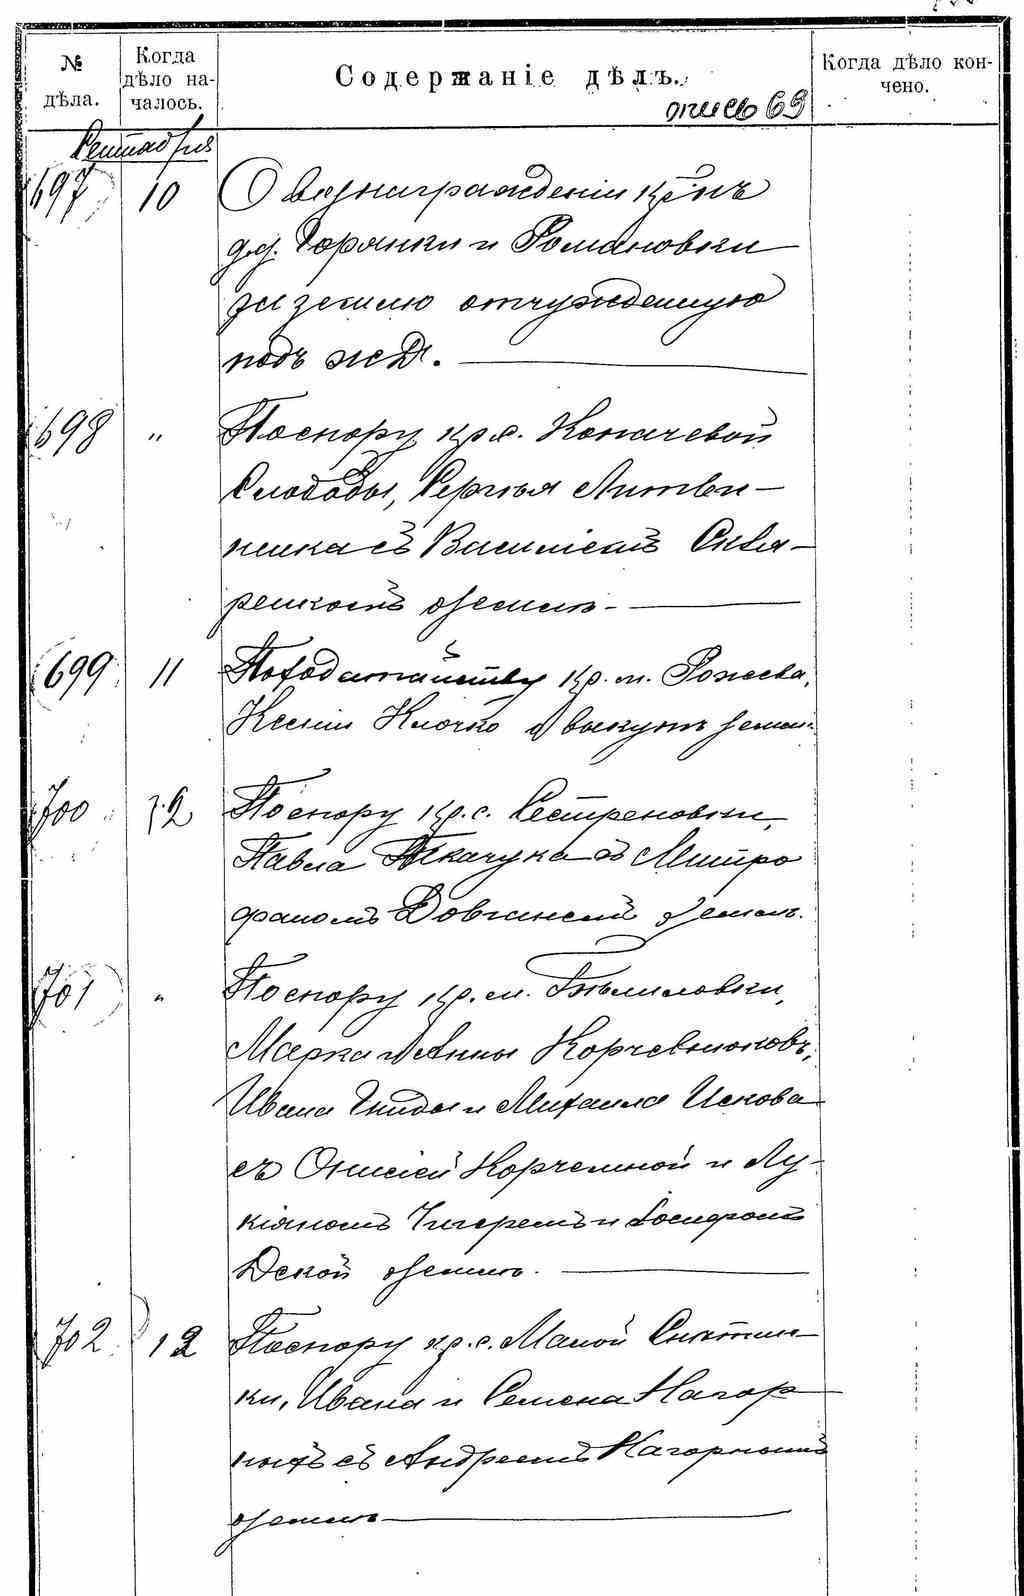 № дѣла.
Когда дѣло на-чалось.
Содержаніе дѣлъ.
Когда дѣло кон-чено.
опись 69
Сентября
697 10 О вознагражденіи кр-нъ
д.д. Горянки и Романовки
за землю отчужденную
подъ ж.д.
698 " По спору кр. с. Копачевой
Слободы, Сергѣя Литви-
ненка съ Василіемъ Скля-
ренкомъ о землѣ.
699 11 По ходатайству кр. м. Рожева,
Ксеніи Клочко о выкупѣ земли.
700 12 По спору кр. с. Сестреновки,
Павла Ткачука съ Митро
фаномъ Довганемъ о землѣ.
701 " По спору кр. м. Бѣлиловки,
Марка и Анны Корчевнюковъ,
Ивана Гниды и Михаила Искова
съ Онисіей Корчемной и Лу-
кіяномъ Чигремъ и Іосифомъ
о землѣ.
702 12 По спору кр. с. Малой Снѣтин-
ки, Ивана и Семена Нагор
ныхъ съ Андреемъ Нагорнымъ
о землѣ